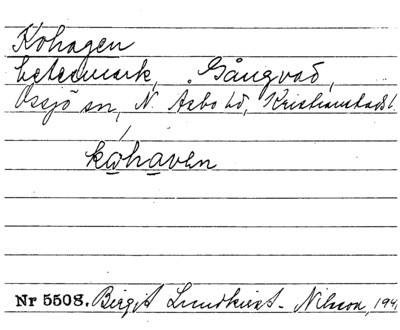 Kohagen
betesmark, Gångvad,
Ossjö sn, N. Åsbo hd, Kristianstads l.
kωhaven
Nr 5508. Birgit Lundkvist-Nilsson, 194